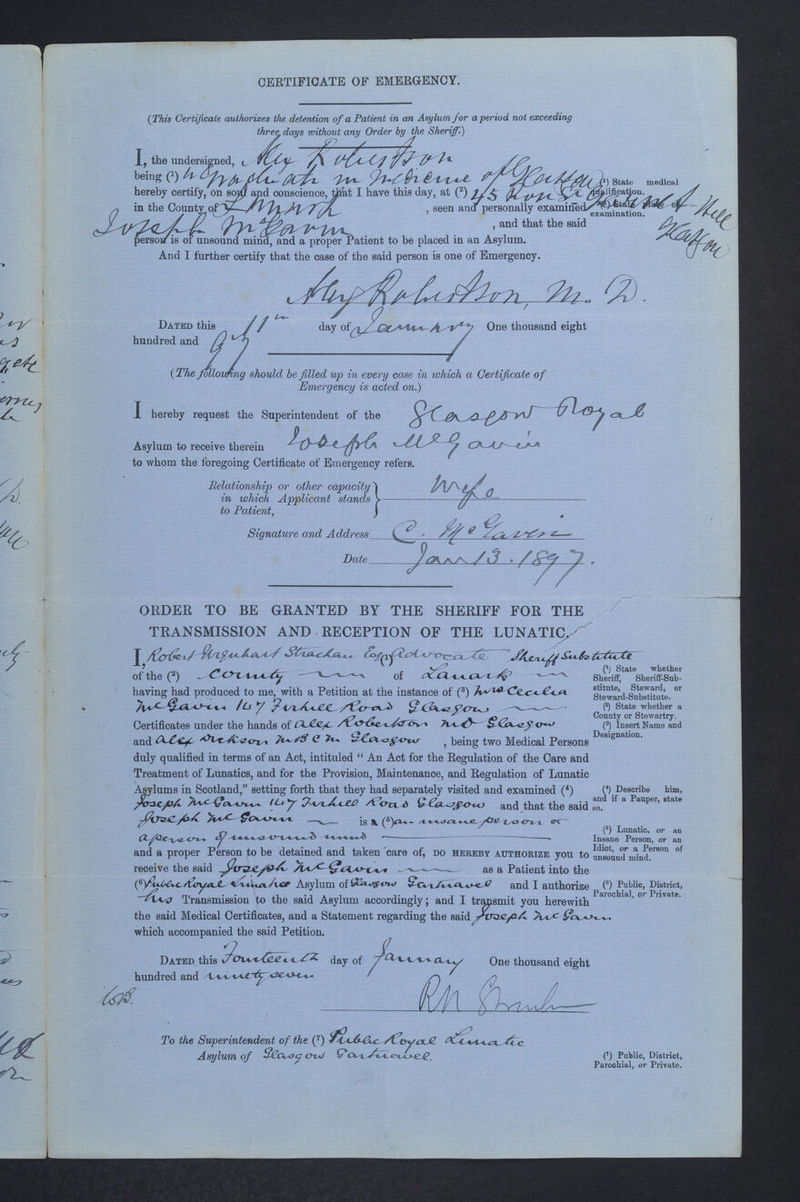 CERTIFICATE OF EMERGENCY.
(This Certificate authorizes the detention of a Patient in an Asylum for a period not exceeding
three days without any Order by the Sheriff.)
I, the undersigned, Alex Robertson
being (1) a Graduate in Medicine of Glasgow
(1) State medical
qualification.
hereby certify, on soul and conscience, that I have this day, at (2) 45
Hill
Glasgow
in the County of Lanark, seen and personally examined
(2) State place of
examination.
Joseph McGavin, and that the said
person is of unsound mind, and a proper Patient to be placed in an Asylum.
And I further certify that the case of the said person is one of Emergency.
Alex Robertson, M. D.
DATED this 11th day of January One thousand eight
hundred and 97
(The following should be filled up in every case in which a Certificate of
Emergency is acted on.)
I hereby request the Superintendent of the Glasgow Royal
Asylum to receive therein Joseph McGavin
to whom the foregoing Certificate of Emergency refers.
Relationship or other capacity
in which Applicant stands
to Patient,
Wife
Signature and Address C. McGavin
Date Jan 13. 1897.
ORDER TO BE GRANTED BY THE SHERIFF FOR THE
TRANSMISSION AND RECEPTION OF THE LUNATIC.
I, Robert Urquhart Strachan Esq Advocate (1) Sheriff Substitute
of the (2) County of Lanark
(1) State whether
Sheriff, Sheriff-Sub-
stitute, Steward, or
Steward-Substitute.
having had produced to me, with a Petition at the instance of (3) Mrs Cecilia
McGavin 147 Firhill Road Glasgow
(2) State whether a
County or Stewartry.
Certificates under the hands of Alex Robertson MD Glasgow
(3) Insert Name and
Designation.
and Alex Dickson M B C M Glasgow, being two Medical Persons
duly qualified in terms of an Act, intituled "An Act for the Regulation of the Care and
Treatment of Lunatics, and for the Provision, Maintenance, and Regulation of Lunatic
Asylums in Scotland," setting forth that they had separately visited and examined (4)
(4) Describe him,
and if a Pauper, state
so.
Joseph McGavin 147 Firhill Road Glasgow and that the said
Joseph McGavin is a (5) an insane person or
a person of unsound mind
(5) Lunatic, or an
Insane Person, or an
Idiot, or a Person of
unsound mind.
and a proper Person to be detained and taken care of, DO HEREBY AUTHORIZE you to
receive the said Joseph McGavin as a Patient into the
(6) Public Royal Lunatic Asylum of Glasgow Gartnavel and I authorize
(6) Public, District,
Parochial, or Private.
his Transmission to the said Asylum accordingly; and I transmit you herewith
the said Medical Certificates, and a Statement regarding the said Joseph McGavin
which accompanied the said Petition.
DATED this Fourteenth day of January One thousand eight
hundred and ninety seven
R U Strachan
To the Superintendent of the (7) Public Royal Lunatic
Asylum of Glasgow Gartnavel.
(7) Public, District,
Parochial, or Private.